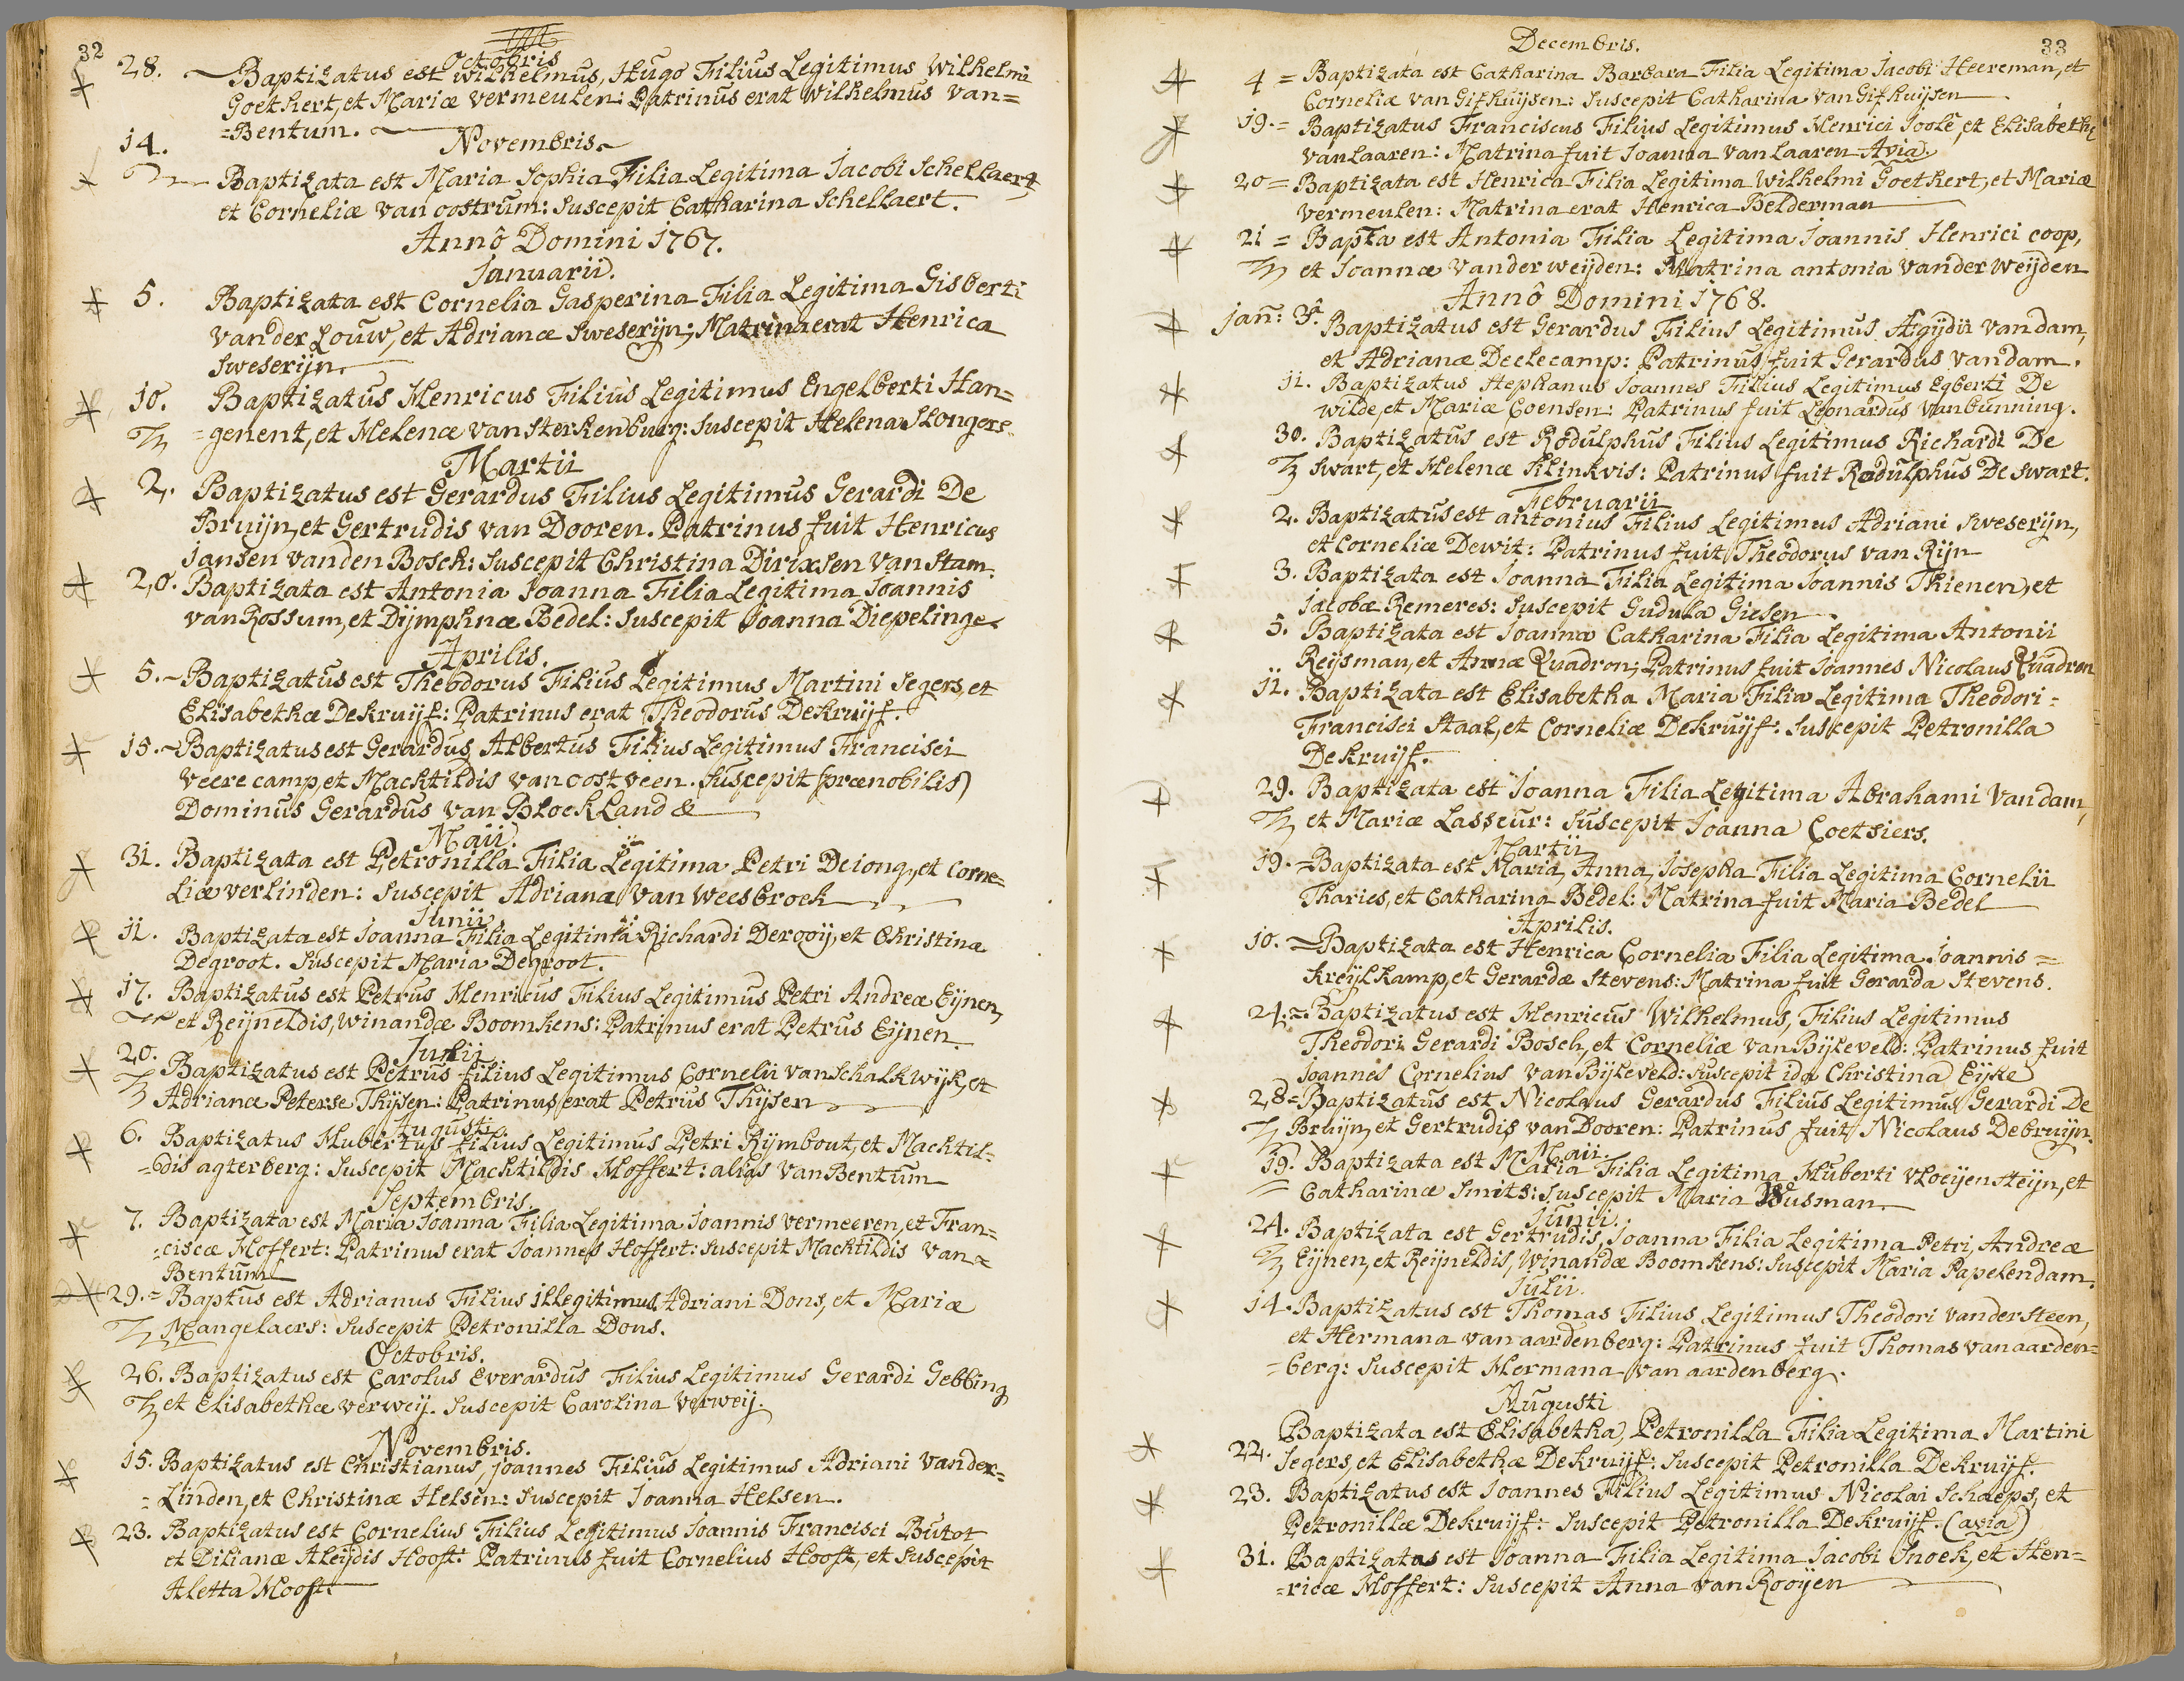 32
Octobris
28. Baptizatus est Wilhelmus, Hugo Filius Legitimus Wilhelmi
Goethert, et Mariæ Vermeulen: Patrinus erat Wilhelmus Van=
=Bentum.
14. Novembris
Baptizata est Maria Sophia Filia Legitima Jacobi Schellaert,
et Corneliæ van oostrum: Suscepit Catharina Schellaert.
Annô Domini 1767.
Januarii.
5. Baptizata est Cornelia Gasperina Filia Legitima Gisberti
Vander Louw, et Adrianæ Sweserijn; Matrina erat Henrica
Sweserijn.
10. Baptizatus Henricus Filius Legitimus Engelberti Han=
=genent, et Helenæ van Sterkenburg: Suscepit Helena Slongers
Martii
2. Baptizatus est Gerardus Filius Legitimus Gerardi De
Bruijn, et Gertrudis van Dooren. Patrinus fuit Henricus
Jansen vanden Bosch: Suscepit Christina Dirixsen Van Stam.
20. Baptizata est Antonia Joanna Filia Legitima Joannis
van Rossum, et Dijmphnæ Bedel: Suscepit Joanna Diepelinge
Aprilis.
5. Baptizatus est Theodorus Filius Legitimus Martini Segers, et
Elisabethæ Dekruijf: Patrinus erat Theodorus Dekruijf.
15. Baptizatus est Gerardus Albertus Filius Legitimus Francisci
Veerecamp, et Machtildis van oostveen. Suscepit (prænobilis)
Dominus Gerardus van Blockland &
Maii.
31. Baptizata est Petronilla Filia Legitima Petri Deiong, et Corne=
liæ verlinden: Suscepit Adriana Van Weesbroek
Junii
11. Baptizata est Joanna Filia Legitima Richardi Derooij, et Christinæ
Degroot. Suscepit Maria Degroot.
17. Baptizatus est Petrus Henricus Filius Legitimus Petri Andreæ Eijnen,
et Reijneldis, Winandæ Boomkens: Patrinus erat Petrus Eijnen.
Julii
20. Baptizatus est Petrus filius Legitimus Cornelii van Schalkwijk, et
Adrianæ Peterse Thijsen: Patrinus erat Petrus Thijsen
Augusti
6. Baptizatus Hubertus filius Legitimus Petri Rijmbout, et Machtil=
=dis agterberg: Suscepit Machtildis Hoffert: alias Van Bentum
Septembris.
7. Baptizata est Maria Joanna Filia Legitima Joannis vermeeren, et Fran=
=ciscæ Hoffert: Patrinus erat Joannes Hoffert: Suscepit Machtildis Van=
Bentum
29.= Baptus est Adrianus Filius illegitimus Adriani Dons, et Mariæ
Mangelaers: Suscepit Petronilla Dons.
Octobris.
26. Baptizatus est Carolus Everardus Filius Legitimus Gerardi Gebbing
et Elisabethæ verweij. Suscepit Carolina Verweij.
Novembris.
15. Baptizatus est Christianus, joannes Filius Legitimus Adriani Vander=
=Linden, et Christinæ Helsen: Suscepit Joanna Helsen.
23. Baptizatus est Cornelius Filius Legitimus Joannis Francisci Butot
et Dilianæ Aleijdis Hooft: Patrinus fuit Cornelius Hooft, et Suscepit
Aletta Hooft.
Decembris.
33
4 = Baptizata est Catharina Barbara Filia Legitima Jacobi Heereman, et
Corneliæ van Gifhuijsen: Suscepit Catharina Van Gifhuijsen
19.= Baptizatus Franciscus Filius Legitimus Henrici Joole, et Elisabethæ
van Laaren: Matrina fuit Joanna van Laaren Avia.
20 = Baptizata est Henrica Filia Legitima Wilhelmi Goethert, et Mariæ
Vermeulen: Matrina erat Henrica Belderman
21 = Bapta est Antonia Filia Legitima Joannis Henrici coop,
et Joannæ Vander weijden: Matrina antonia Vander Weijden
Annô Domini 1768.
Jan: 3. Baptizatus est Gerardus Filius Legitimus Ægijdii van dam,
et Adrianæ Declecamp: Patrinus fuit Gerardus van dam.
11. Baptizatus Stephanus Joannes Filius Legitimus Egberti De
wilde, et Mariæ Coensen: Patrinus fuit Leonardus Van bunning.
30. Baptizatus est Rodulphus Filius Legitimus Richardi De
Swart, et Helenæ Klinkvis: Patrinus fuit Rodulphus De Swart.
Februarii
2. Baptizatus est antonius Filius Legitimus Adriani Sweserijn,
et Corneliæ Dewit: Patrinus fuit Theodorus van Rijn
3. Baptizata est Joanna Filia Legitima Joannis Thienen, et
Jacobæ Remeres: Suscepit Gudula Giesen
5. Baptizata est Joanna Catharina Filia Legitima Antonii
Reijsman, et Annæ Quadron; Patrinus fuit Joannes Nicolaus Quadron
11. Baptizata est Elisabetha Maria Filia Legitima Theodori=
Francisci Staal, et Corneliæ Dekruijf: Suscepit Petronilla
Dekruijf.
29. Baptizata est Joanna Filia Legitima Abrahami Van dam,
et Mariæ Lasseur: Suscepit Joanna Coetsiers.
Martii
19.= Baptizata est Maria, Anna, Josepha Filia Legitima Cornelii
Tharies, et Catharina Bedel: Matrina fuit Maria Bedel
Aprilis.
10. = Baptizata est Henrica Cornelia Filia Legitima Joannis=
Kreijlkamp, et Gerardæ Stevens: Matrina fuit Gerarda Stevens.
24.= Baptizatus est Henricus Wilhelmus, Filius Legitimus
Theodori Gerardi Bosch, et Corneliæ van Bijleveld: Patrinus fuit
Joannes Cornelius van Bijleveld: Suscepit ida Christina Eijste
28= Baptizatus est Nicolaus Gerardus Filius Legitimus Gerardi De
Bruijn, et Gertrudis van Dooren: Patrinus fuit Nicolaus Debruijn.
Maii.
19. Baptizata est Maria Filia Legitima Huberti Vloeijensteijn, et
Catharinæ Smits: Suscepit Maria Wusman.
Junii.
24. Baptizata est Gertrudis, Joanna Filia Legitima Petri, Andreæ
Eijnen, et Reijneldis, Winandæ Boomkens: Suscepit Maria Papelendam.
Julii.
14. Baptizatus est Thomas Filius Legitimus Theodori Vander Steen,
et Hermana van aardenberg: Patrinus fuit Thomas van aarden=
=berg: Suscepit Hermana van aardenberg.
Augusti
22. Baptizata est Elisabetha, Petronilla Filia Legitima Martini
Segers, et Elisabethæ Dekruijf: Suscepit Petronilla Dekruijf.
23. Baptizatus est Joannes Filius Legitimus Nicolai Schaeps, et
Petronillæ Dekruijf: Suscepit Petronilla Dekruijf. (avia)
31. Baptizatas est Joanna Filia Legitima Jacobi Snoek, et Hen=
=ricæ Hoffert: Suscepit Anna van Rooijen